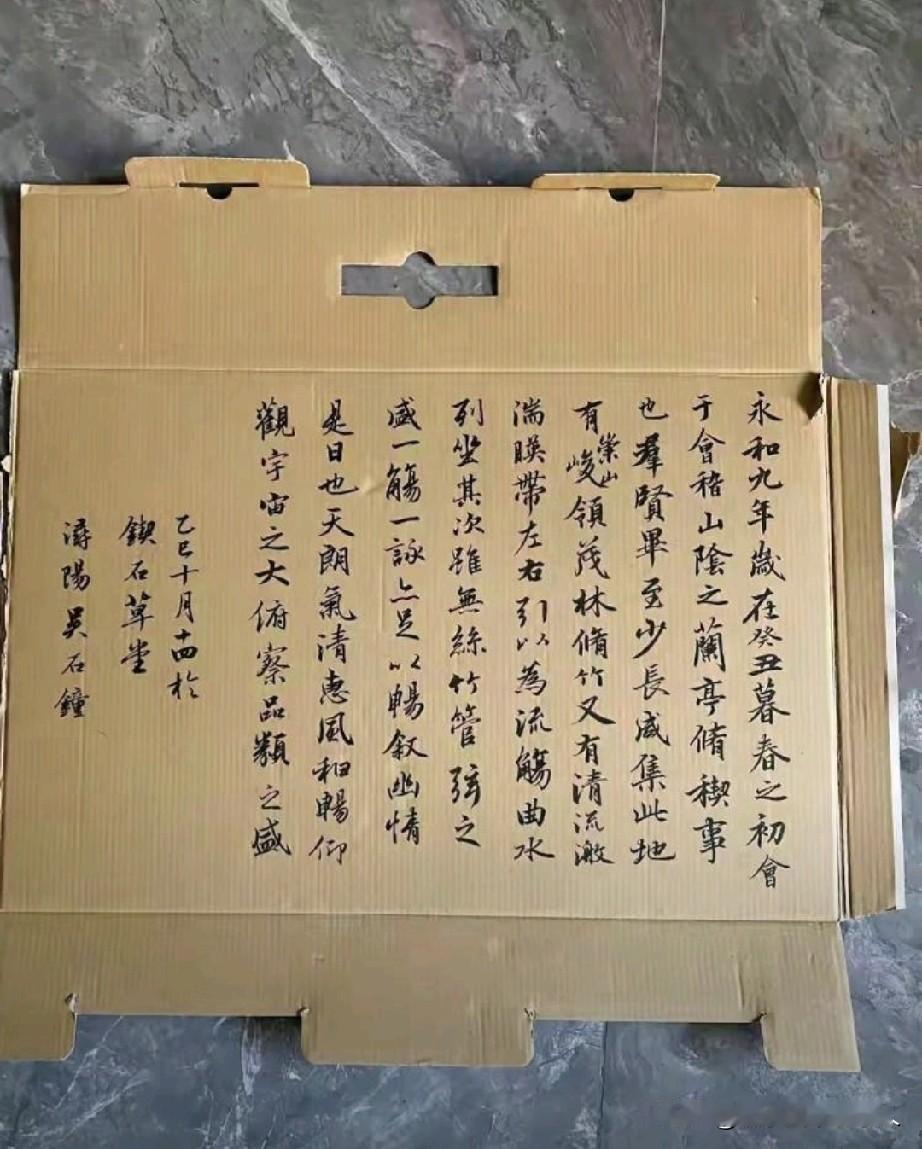 永和九年歲在癸丑暮春之初會
于會稽山陰之蘭亭脩稧事
也羣賢畢至少長咸集此地
有崇山峻領茂林脩竹又有清流激
湍暎帶左右引以為流觴曲水
列坐其次雖無絲竹管弦之
盛一觴一詠亦足以暢叙幽情
是日也天朗氣清惠風和暢仰
觀宇宙之大俯察品類之盛
乙巳十月十四於
鍥石草堂
潯陽吴石鐘